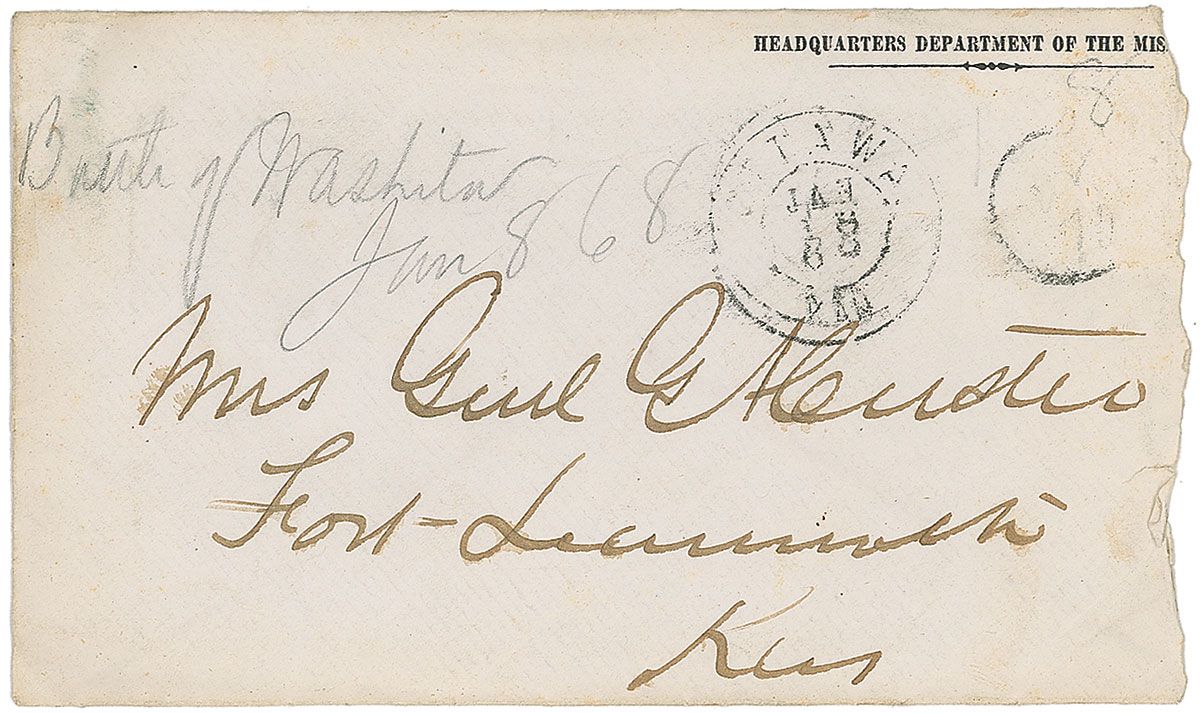 HEADQUARTERS DEPARTMENT OF THE MIS
8
Battle of Washita
Jan 8 68
OTTAWA
JAN
8
68
KAN
Mrs Genl G A Custer
Fort Leavenworth
Kas